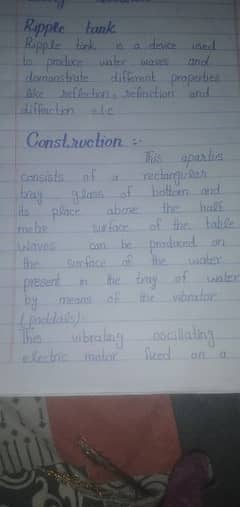 Ripple tank
Ripple tank is a device used
to produce water waves and
demonstrate different properties
like reflection, refraction and
diffraction etc
Construction :-
This apartus
consists of a rectangular
tray glass of bottom and
its place above the half
metre surface of the table
waves can be produced on
the surface of the water
present in the tray of water
by means of the vibrator
(paddals).
This vibrating oscillating
electric motor fixed on a